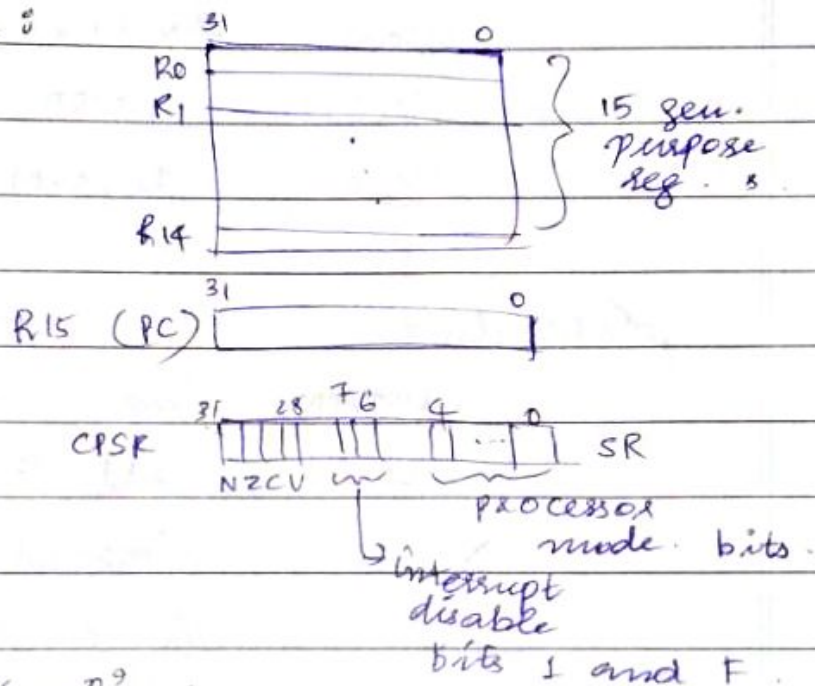 31 0
R0
R1
15 gen.
purpose
reg. s
R14
31 0
R15 (PC)
31 28 7 6 4 0
CPSR ... SR
N Z C V
processor
mode. bits.
interrupt
disable
bits I and F.